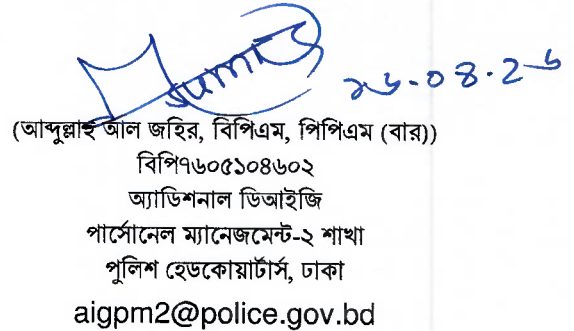 ২৬.০৪.২৬
(আব্দুল্লাহ আল জহির, বিপিএম, পিপিএম (বার))
বিপি৭৬০৫১০৪৬০২
অ্যাডিশনাল ডিআইজি
পার্সোনেল ম্যানেজমেন্ট-২ শাখা
পুলিশ হেডকোয়ার্টার্স, ঢাকা
aigpm2@police.gov.bd